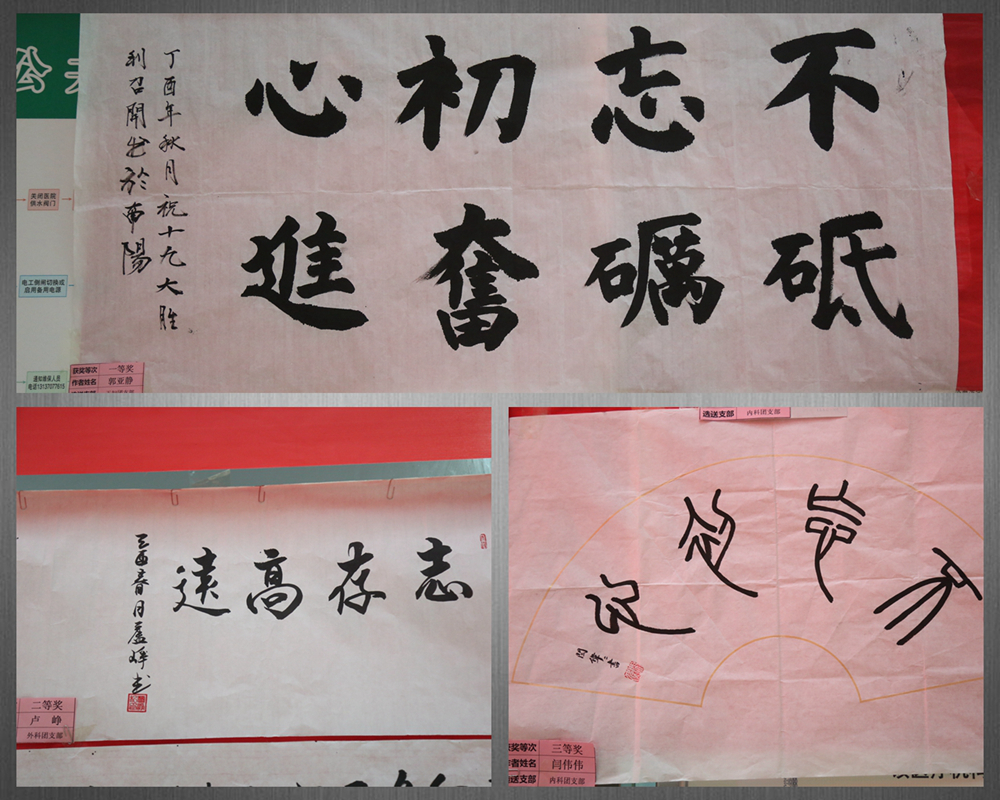 不忘初心
砥礪奮進
丁酉年秋月祝十九大胜
利召開书於南陽
关闭医院
供水阀门
电工倒闸切换成
启用备用电源
通知维保人员
获奖等次 一等奖
作者姓名 郭亚静
志存高遠
丁酉春月盧崢书
二等奖
卢 峥
外科团支部
选送支部 内科团支部
不忘初心
閆偉偉書
获奖等次 三等奖
作者姓名 闫伟伟
选送支部 内科团支部